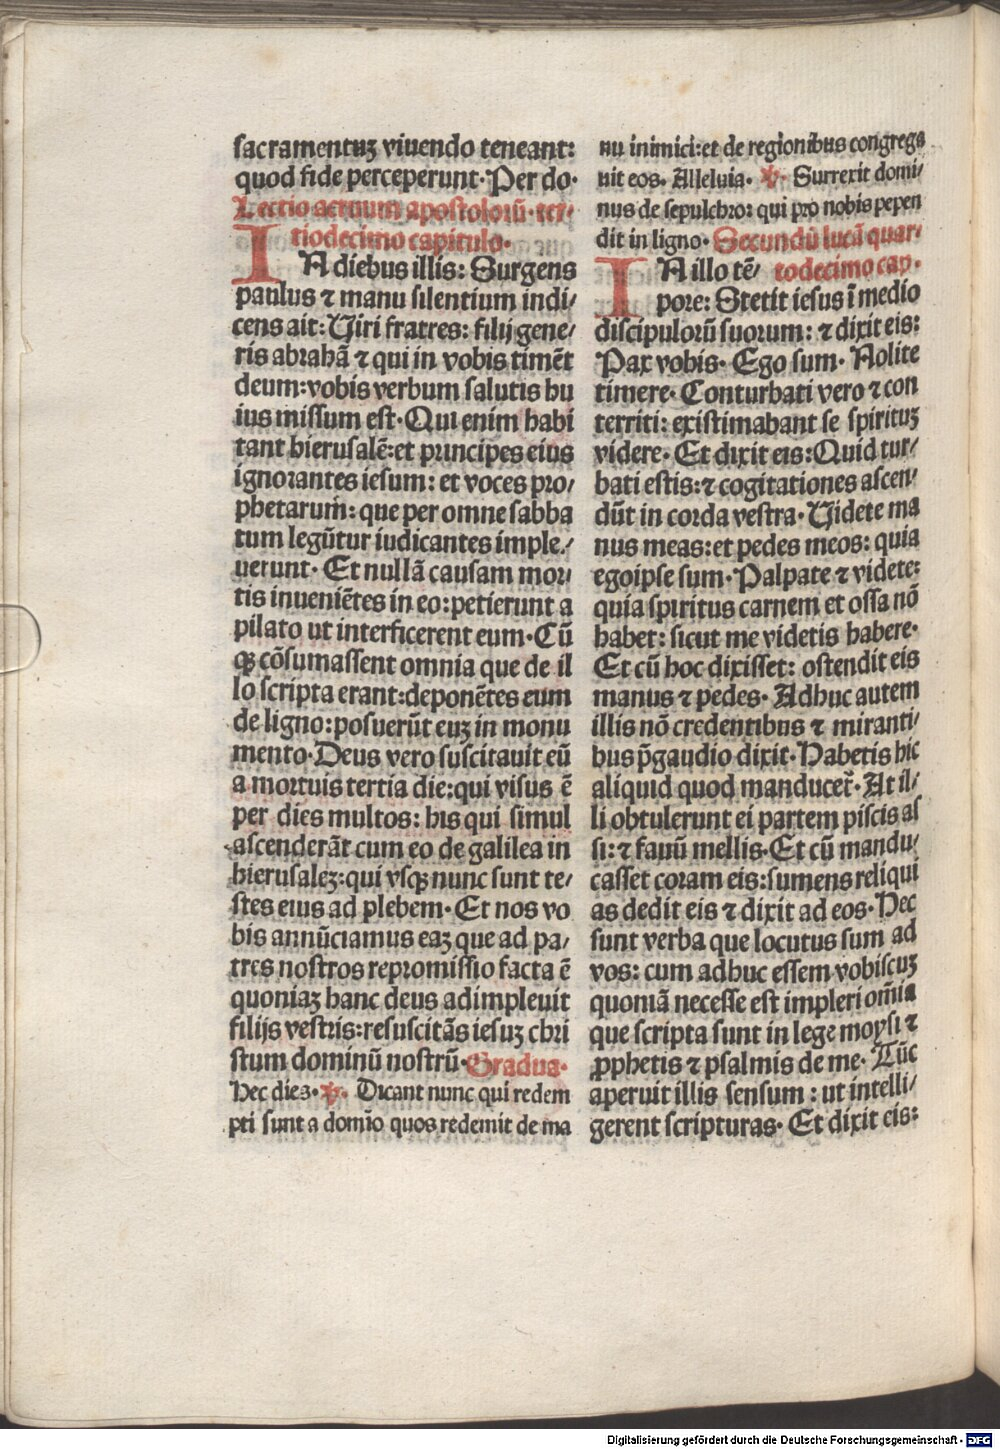 sacramentuꝫ viuendo teneant:
quod fide perceperunt· Per do·
Lectio actuum apostoloꝛū· ter-
tiodecimo capitulo·
IN diebus illis: Surgens
paulus ⁊ manu silentium indi/
cens ait: Viri fratres: filij gene/
ris abrahā ⁊ qui in vobis timēt
deum: vobis verbum salutis hu
ius missum est· Qui enim habi
tant hierusalē: et pꝛincipes eius
ignoꝛantes iesum: et voces pꝛo/
phetarum: que per omne sabba
tum legūtur iudicantes imple/
uerunt· Et nullā causam moꝛ/
tis inueniētes in eo: petierunt a
pilato ut interficerent eum· Cū
qꝫ cōsumassent omnia que de il
lo scripta erant: deponētes eum
de ligno: posuerūt euꝫ in monu
mento· Deus vero suscitauit eū
a moꝛtuis tertia die: qui visus ē
per dies multos: his qui simul
ascenderāt cum eo de galilea in
hierusaleꝫ: qui vsqꝫ nunc sunt te/
stes eius ad plebem· Et nos vo
bis annūciamus eaꝫ que ad pa/
tres nostros repꝛomissio facta ē
quoniaꝫ hanc deus adimpleuit
filijs vestris: resuscitās iesuꝫ chꝛi
stum dominū nostrū· Gradua·
Hec dies· ℣· Dicant nunc qui redem
pti sunt a domīo quos redemit de ma
nu inimici: et de regionibus congrega
uit eos· Alleluia· ℣· Surrexit domi/
nus de sepulchro: qui pro nobis pepen
dit in ligno· Secundū lucā quar/
todecimo cap·
IN illo tē/
pore: Stetit iesus ī medio
discipuloꝛū suorum: ⁊ dixit eis:
Pax vobis· Ego sum· Nolite
timere· Conturbati vero ⁊ con
territi: existimabant se spirituꝫ
videre· Et dixit eis: Quid tur/
bati estis: ⁊ cogitationes ascen/
dūt in coꝛda vestra· Videte ma
nus meas: et pedes meos: quia
ego ipse sum· Palpate ⁊ videte:
quia spiritus carnem et ossa nō
habet: sicut me videtis habere·
Et cū hoc dixisset: ostendit eis
manus ⁊ pedes· Adhuc autem
illis nō credentibus ⁊ miranti/
bus p̄ gaudio dixit· Habetis hic
aliquid quod manducet̄· At il/
li obtulerunt ei partem piscis as
si: ⁊ fauū mellis· Et cū mandu/
casset coram eis: sumens reliqui
as dedit eis ⁊ dixit ad eos· Hec
sunt verba que locutus sum ad
vos: cum adhuc essem vobiscuꝫ
quoniā necesse est impleri om̄ia
que scripta sunt in lege moysi ⁊
ꝓphetis ⁊ psalmis de me· Tūc
aperuit illis sensum: ut intelli/
gerent scripturas· Et dixit eis:
Digitalisierung gefördert durch die Deutsche Forschungsgemeinschaft - DFG